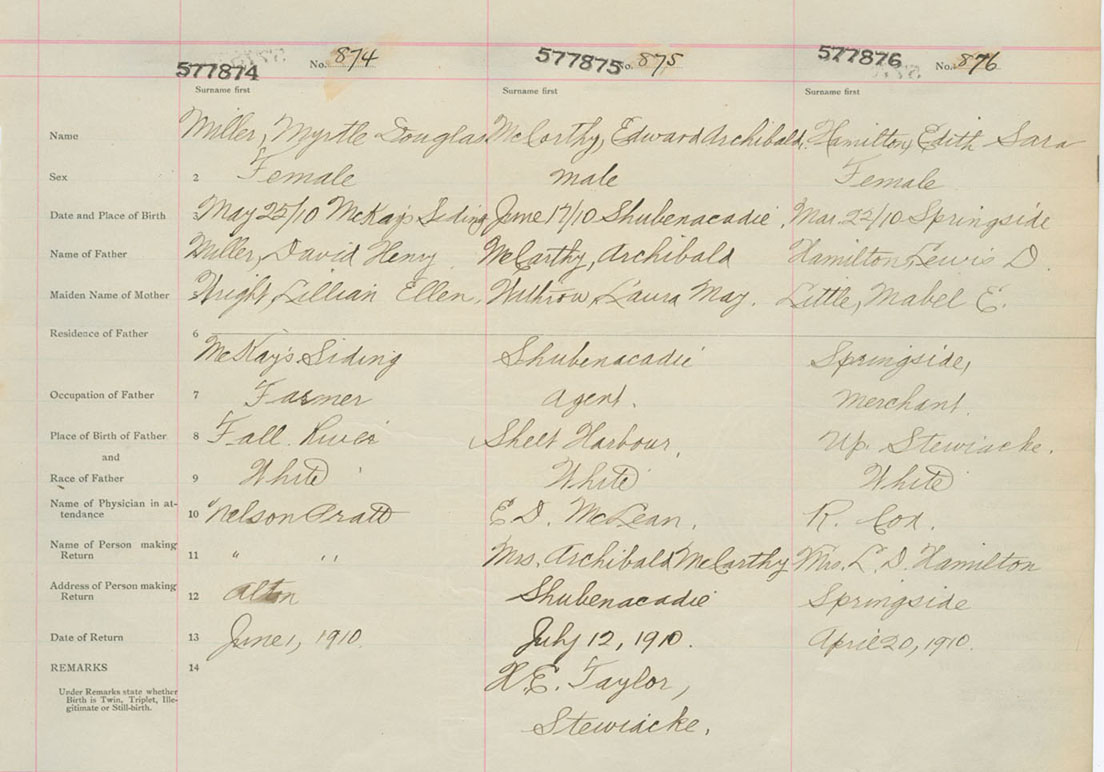 577874 No. 874 577875 No. 875 577876 No. 876
Surname first Surname first Surname first
Name Miller, Myrtle Douglas McCarthy, Edward Archibald, Hamilton, Edith Sara
Sex 2 Female male Female
Date and Place of Birth 3 May 25/10 McKay's Siding June 17/10 Shubenacadie, Mar. 22/10 Springside
Name of Father Miller, David Henry McCarthy, Archibald Hamilton, Lewis D.
Maiden Name of Mother 5 Wright, Lillian Ellen, Withrow, Laura May. Little, Mabel E.
Residence of Father 6
McKay's Siding Shubenacadie Springside,
Occupation of Father 7 Farmer agent. merchant.
Place of Birth of Father 8 Fall River Sheet Harbour, Up. Stewiacke.
and
Race of Father 9 White White White
Name of Physician in at-
tendance 10 Nelson Pratt E D. McLean, R. Cox.
Name of Person making
Return 11 " " Mrs. Archibald McCarthy Mrs. L. D. Hamilton
Address of Person making
Return 12 Alton Shubenacadie Springside
Date of Return 13 June 1, 1910. July 12, 1910. April 20, 1910.
REMARKS 14
H. E. Taylor,
Under Remarks state whether
Birth is Twin, Triplet, Ille-
gitimate or Still-birth.
Stewiacke.